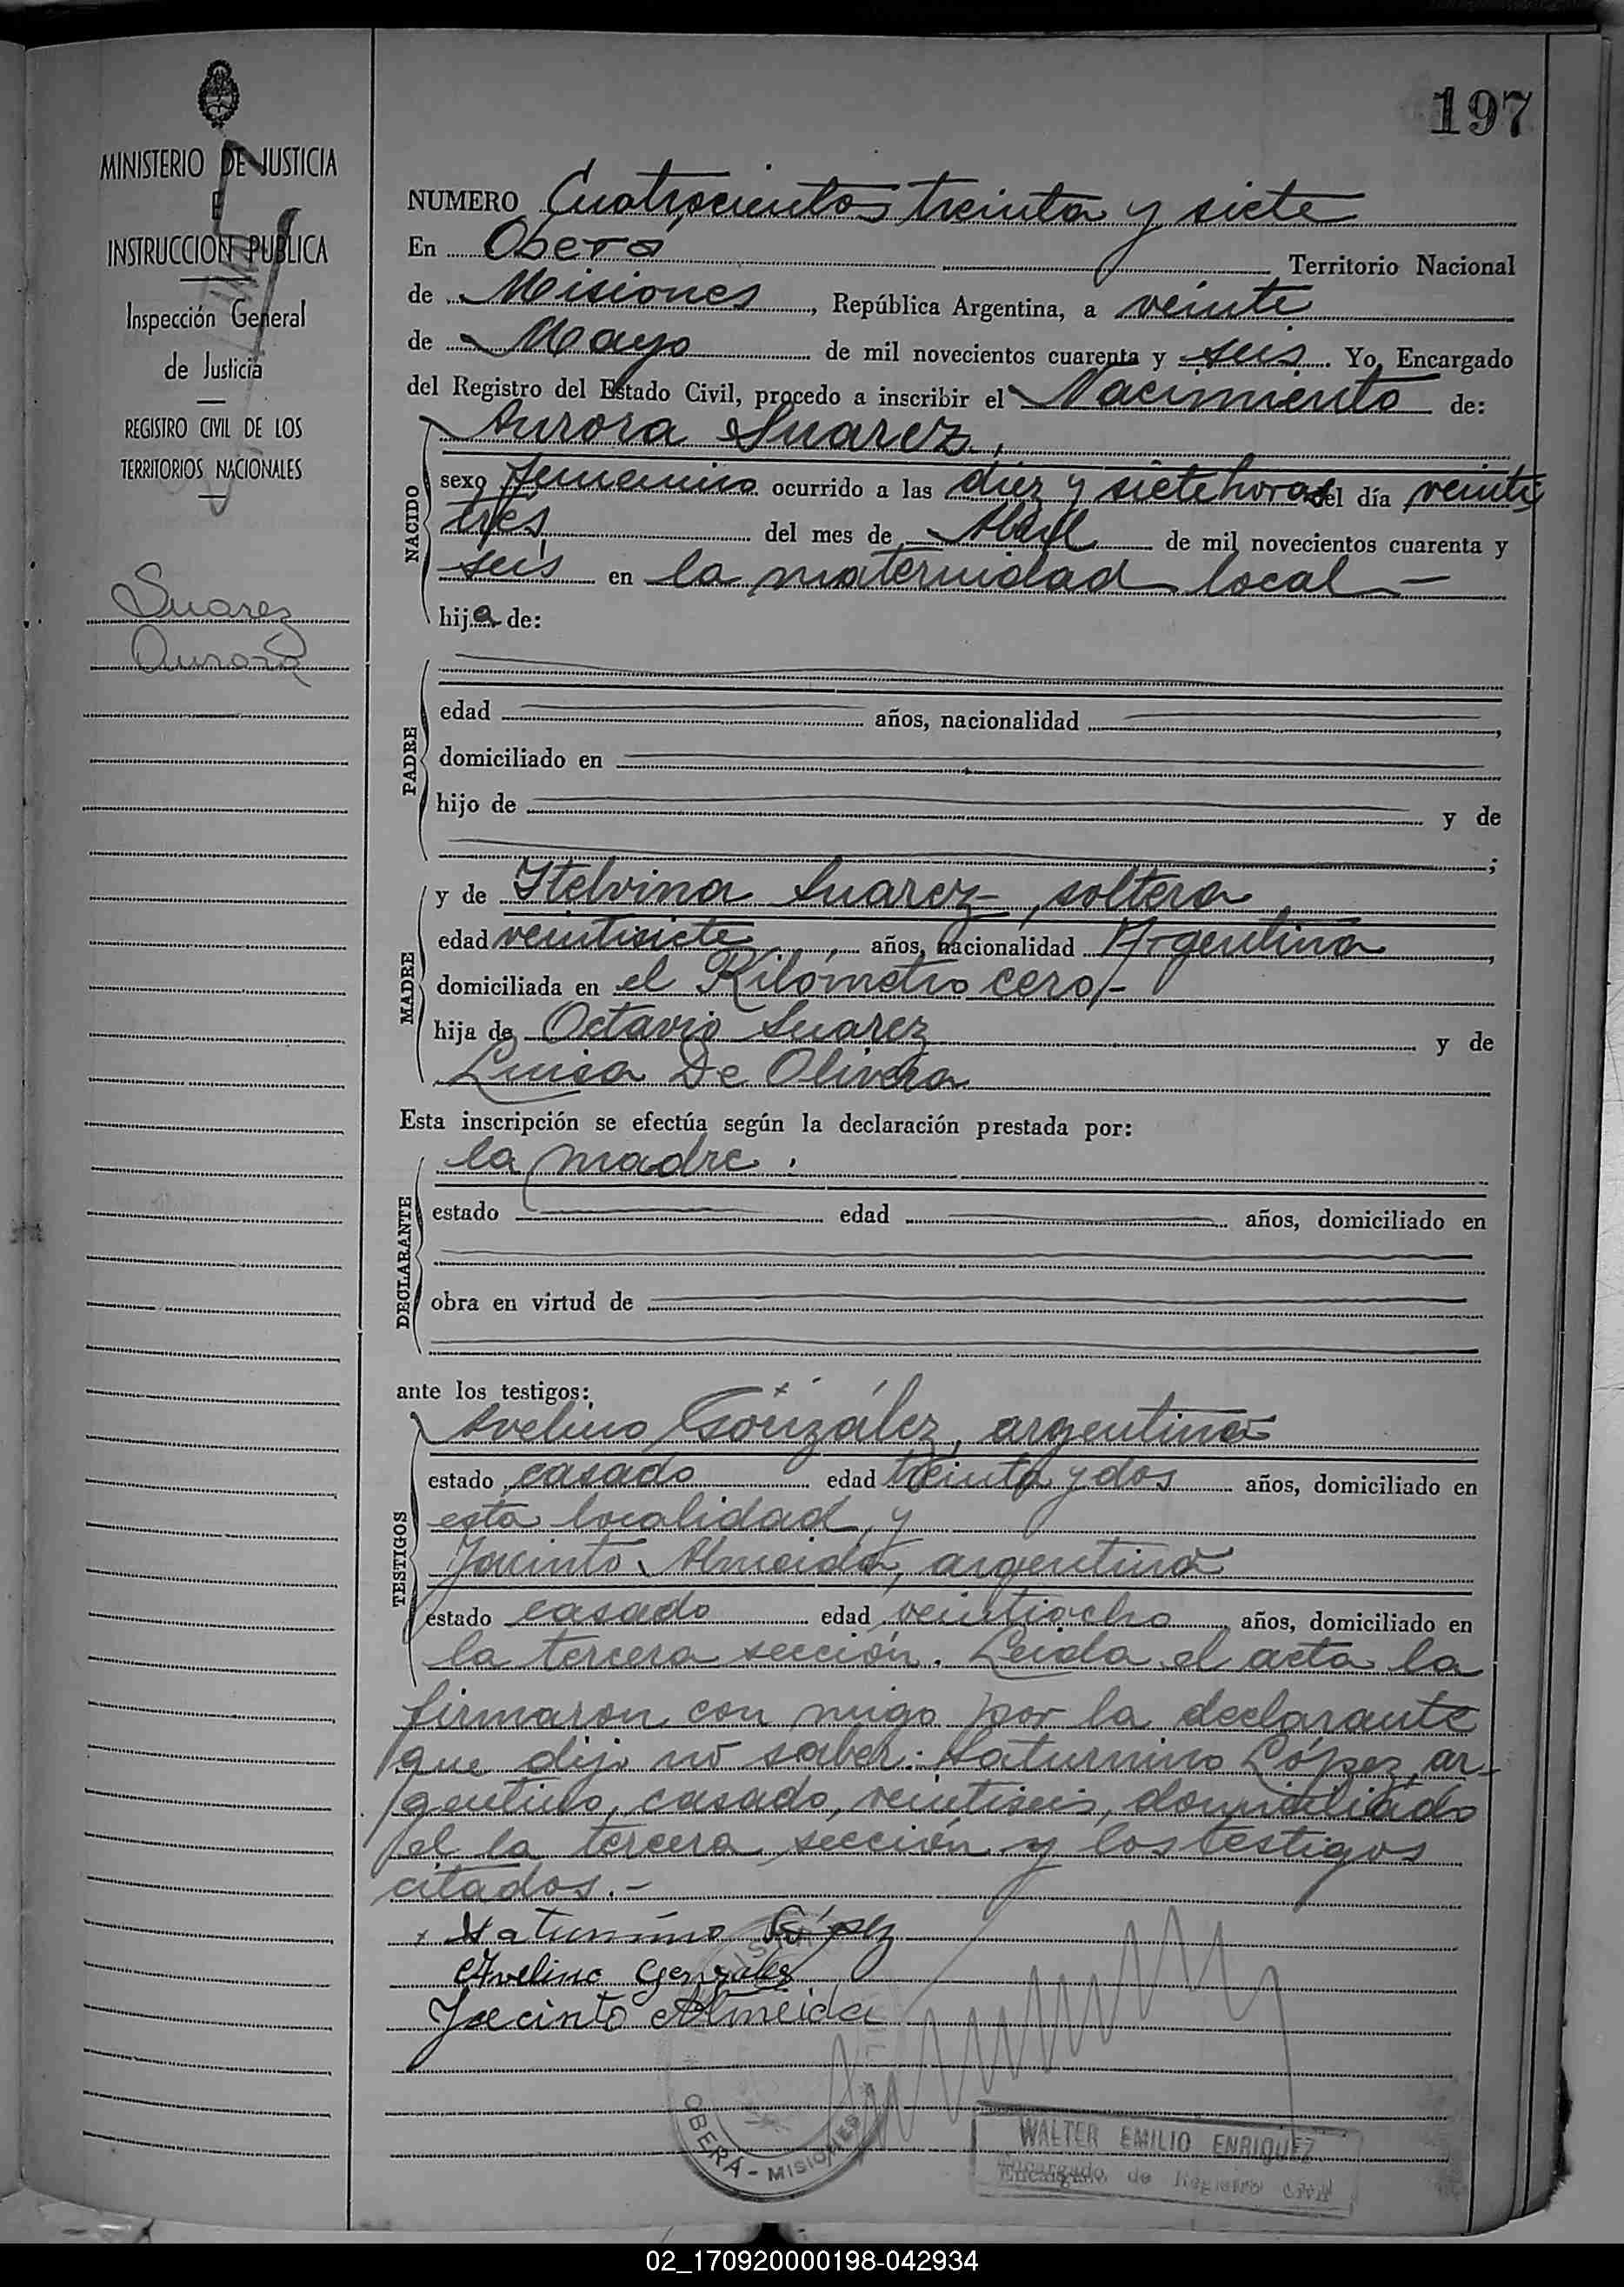 197
MINISTERIO DE JUSTICIA
E
INSTRUCCION PUBLICA
Inspección General
de Justicia
REGISTRO CIVIL DE LOS
TERRITORIOS NACIONALES
Suarez
Aurora
NUMERO Cuatrocientos treinta y siete
En Oberá Territorio Nacional
de Misiones, República Argentina, a veinte
de Mayo de mil novecientos cuarenta y seis. Yo, Encargado
del Registro del Estado Civil, procedo a inscribir el Nacimiento de:
NACIDO
Aurora Suarez,
sexo femenino ocurrido a las diez y siete horas del día veinti
tres del mes de Abril de mil novecientos cuarenta y
seis en la maternidad local —
hija de:
PADRE
edad años, nacionalidad ,
domiciliado en
hijo de y de
;
MADRE
y de Itelvina Suarez-, soltera
edad veintisiete años, nacionalidad Argentina,
domiciliada en el Kilómetro cero,-
hija de Octavio Suarez y de
Luisa De Olivera
Esta inscripción se efectúa según la declaración prestada por:
DECLARANTE
la madre.
estado edad años, domiciliado en
obra en virtud de
ante los testigos:
TESTIGOS
Avelino González, argentino
estado casado edad treinta y dos años, domiciliado en
esta localidad, y
Jacinto Almeida, argentino
estado casado edad veintiocho años, domiciliado en
la tercera sección. Leida el acta la
firmaron con migo por la declarante
que dijo no saber: Saturnino López, ar-
gentino, casado, veintiseis, domiciliado
el la tercera sección y los testigos
citados.-
Saturnino López
Avelino Gonzales
Jacinto Almeida
OBERÁ - MISIONES
WALTER EMILIO ENRIQUEZ
Encargado de Registro Civil
02_170920000198-042934